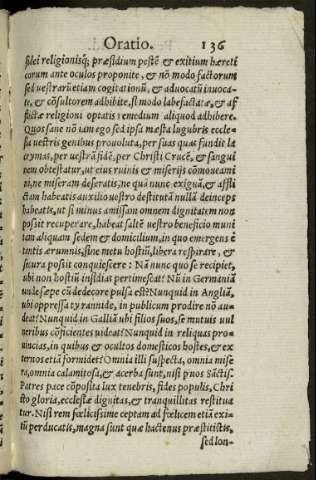 Oratio. 136
fidei religionisq́;, præsidium pestẽ & exitium hæreti
corum ante oculos proponite, & nõ modo factorum
sed uestrarũ etiam cogitationũ, & aduocatũ inuoca-
te, & cõsultorem adhibite, si modo labefactatæ, & af
flictæ religioni optatis remedium aliquod adhibere.
Quos sane nõ iam ego sed ipsa mæsta lugubris eccle-
sia uestris genibus prouoluta, per suas quas fundit la
crymas, per uestrã fidẽ, per Christi Crucẽ, & sangui
nem obtestatur, ut eius ruinis & miserijs cõmoueami
ni, ne miseram deseratis, ne quã nunc exiguã, & affli
ctam habeatis auxilio uestro destitutã nullã deinceps
habeatis, ut si minus amissam omnem dignitatem non
possit recuperare, habeat saltẽ uestro beneficio muni
tam aliquam sedem & domicilium, in quo emergens è
tantis ærumnis, sine metu hostiũ, libera respirare, &
secura possit conquiescere: Nã nunc quo se recipiet,
ubi non hostiũ insidias pertimescat? Nũ in Germaniã
unde sæpe cũ dedecore pulsa est? Nunquid in Angliã,
ubi oppressa tyrannide, in publicum prodire nõ au-
deat? Nunquid in Galliã ubi filios suos, se mutuis uul
neribus cõficientes uideat? Nunquid in reliquas pro-
uincias, in quibus & occultos domesticos hostes, & ex
ternos etiã formidet? Omnia illi suspecta, omnia mise
ra, omnia calamitosa, & acerba sunt, nisi p uos Sãctis.
Patres pace cõposita lux tenebris, fides populis, Chri
sto gloria, ecclesiæ dignitas, & tranquillitas restitua
tur. Nisi rem fœlicissime ceptam ad fœlicem etiã exi-
tũ perducatis, magna sunt quæ hactenus præstitistis,
sed lon-